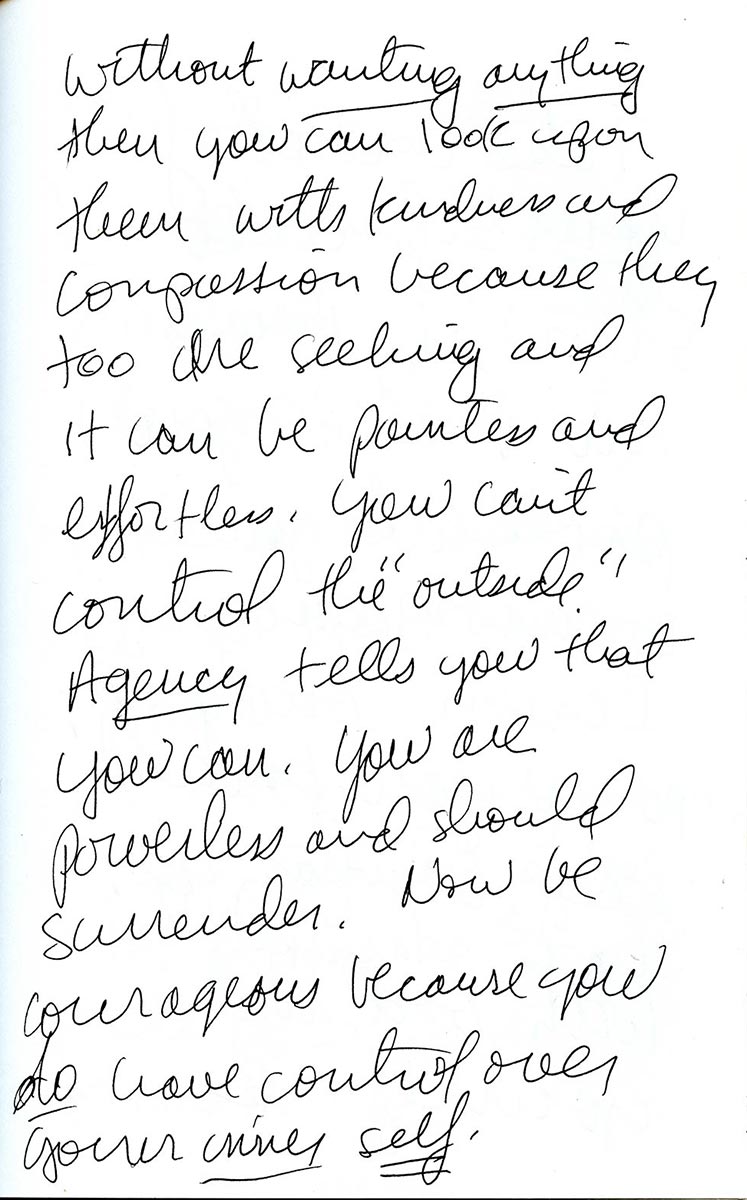 without wanting anything
then you can look upon
them with kindness and
compassion because they
too are seeking and
it can be painless and
effortless. You can't
control the "outside."
Agency tells you that
you can. You are
powerless and should
surrender. Now be
courageous because you
do have control over
your inner self.